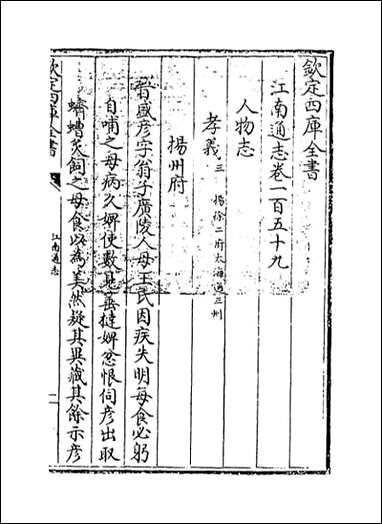 欽定四庫全書
江南通志卷一百五十九
人物志
孝義三 揚徐二府太海通三州
揚州府
晉盛彥字翁子廣陵人母王氏因疾失明每食必躬
自哺之母病久婢使數見捶撻婢忿恨伺彥出取
蠐螬炙飼之母食以為美然疑其異藏其餘示彥
欽定四庫全書
江南通志
一